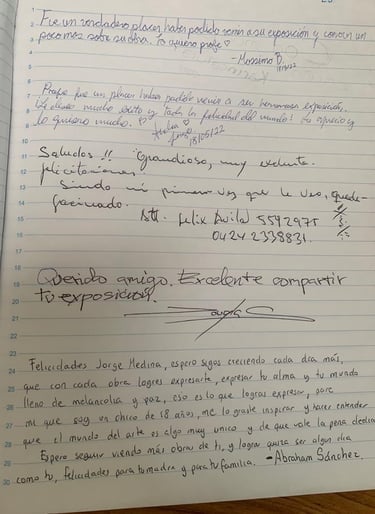 Fue un verdadero placer haber podido venir a su exposición y conocer un
poco mas sobre su obra. Lo quiero profe ♡
- Massimo D.
Profe fue un placer haber podido venir a su hermosa exposición.
Le deseo mucho éxito y toda la felicidad del mundo! Lo aprecio y
lo quiero mucho.
18/05/22
Saludos!! Grandioso, muy exelente.
felicitaciones.
Siendo mi primera vez que le veo, quede
facinado.
Att. Felix Avila 5542975
0424 2338831.
Querido amigo. Excelente compartir
tu exposición.
Felicidades Jorge Medina, espero sigas creciendo cada dia más,
que con cada obra logres expresarte, expresar tu alma y tu mundo
lleno de melancolia y paz, eso es lo que logras expresar, para
mi que soy un chico de 18 años, me lograste inspirar y hacer entender
que el mundo del arte es algo muy unico y de que vale la pena dedica
Espero seguir viendo más obras de ti, y lograr quiza ser algun dia
como tu, felicidades para tu madre y para tu familia. - Abraham Sánchez.